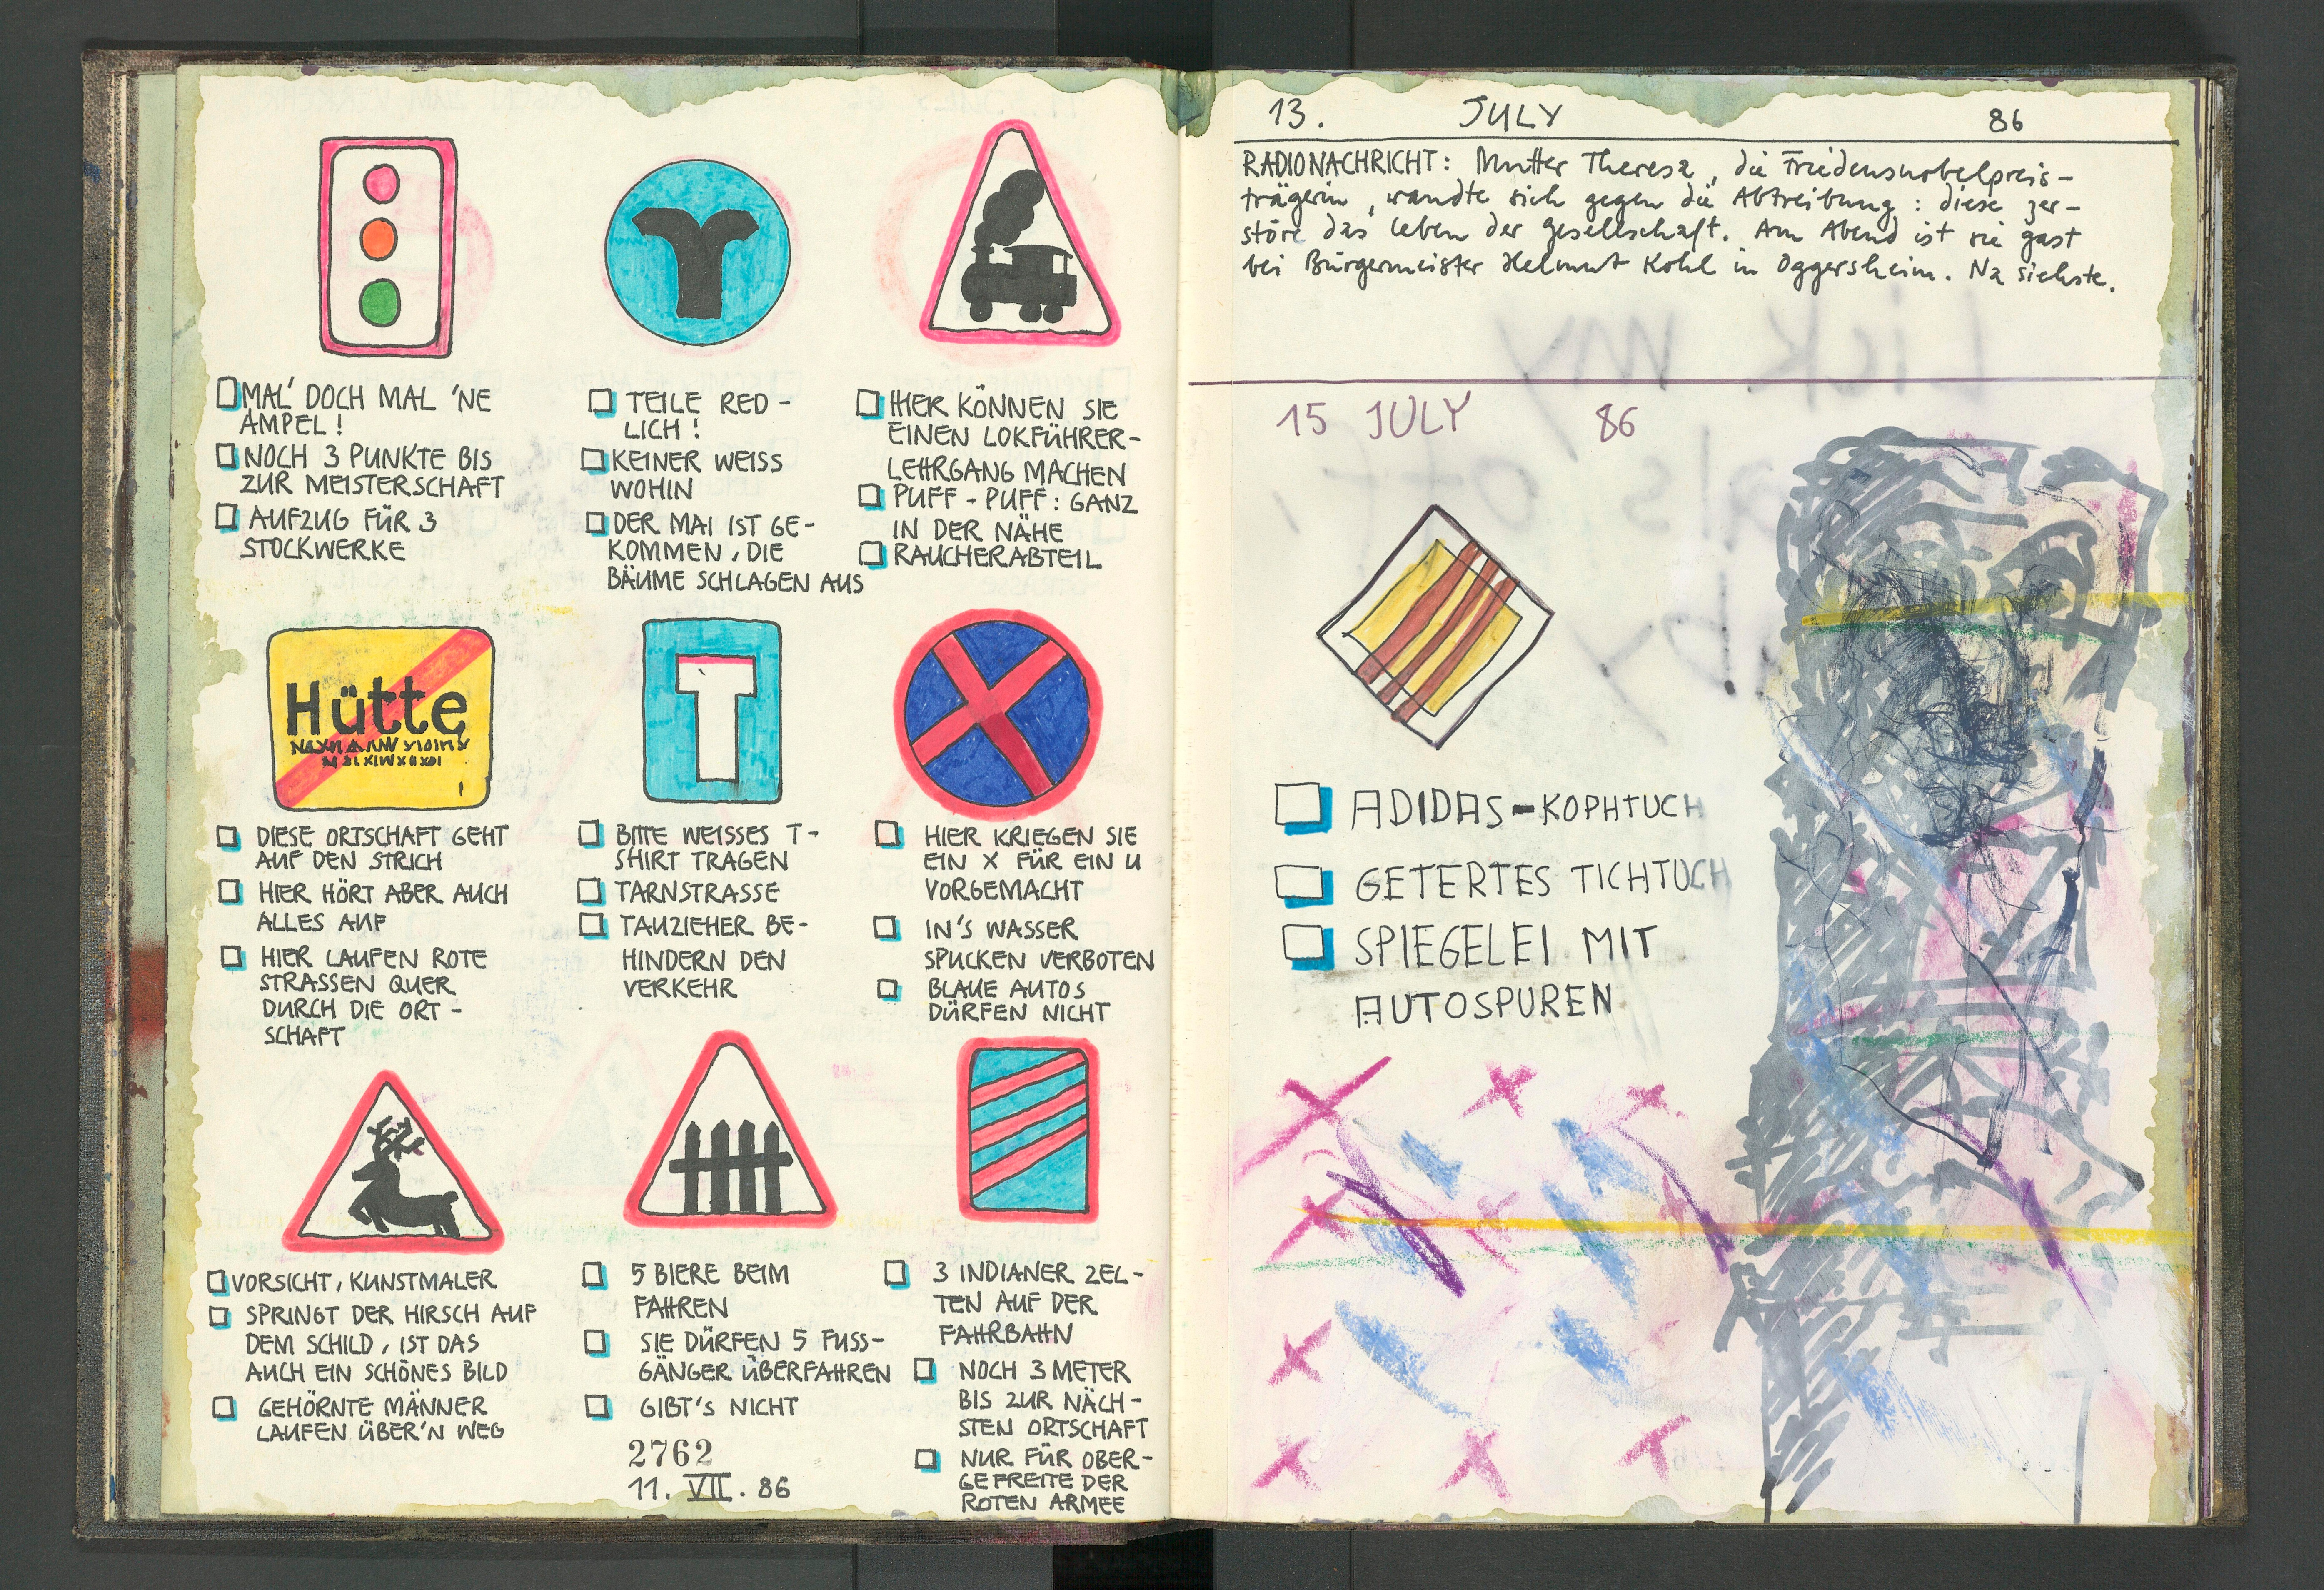 MAL' DOCH MAL 'NE
AMPEL!
NOCH 3 PUNKTE BIS
ZUR MEISTERSCHAFT
AUFZUG FÜR 3
STOCKWERKE
TEILE RED-
LICH!
KEINER WEISS
WOHIN
DER MAI IST GE-
KOMMEN, DIE
BÄUME SCHLAGEN AUS
HIER KÖNNEN SIE
EINEN LOKFÜHRER-
LEHRGANG MACHEN
PUFF-PUFF: GANZ
IN DER NÄHE
RAUCHERABTEIL
Hütte
DIESE ORTSCHAFT GEHT
AUF DEN STRICH
HIER HÖRT ABER AUCH
ALLES AUF
HIER LAUFEN ROTE
STRASSEN QUER
DURCH DIE ORT-
SCHAFT
T
BITTE WEISSES T-
SHIRT TRAGEN
TARNSTRASSE
TAUZIEHER BE-
HINDERN DEN
VERKEHR
HIER KRIEGEN SIE
EIN X FÜR EIN U
VORGEMACHT
IN'S WASSER
SPUCKEN VERBOTEN
BLAUE AUTOS
DÜRFEN NICHT
VORSICHT, KUNSTMALER
SPRINGT DER HIRSCH AUF
DEM SCHILD, IST DAS
AUCH EIN SCHÖNES BILD
GEHÖRNTE MÄNNER
LAUFEN ÜBER'N WEG
5 BIERE BEIM
FAHREN
SIE DÜRFEN 5 FUSS-
GÄNGER ÜBERFAHREN
GIBT'S NICHT
2762
11. VII. 86
3 INDIANER ZEL-
TEN AUF DER
FAHRBAHN
NOCH 3 METER
BIS ZUR NÄCH-
STEN ORTSCHAFT
NUR FÜR OBER-
GEFREITE DER
ROTEN ARMEE
13. JULY 86
RADIONACHRICHT: Mutter Theresa, die Friedensnobelpreis-
trägerin, wandte sich gegen die Abtreibung: diese zer-
störe das Leben der Gesellschaft. Am Abend ist sie Gast
bei Bürgermeister Helmut Kohl in Oggersheim. Na siehste.
15 JULY 86
ADIDAS-KOPHTUCH
GETERTES TICHTUCH
SPIEGELEI MIT
AUTOSPUREN